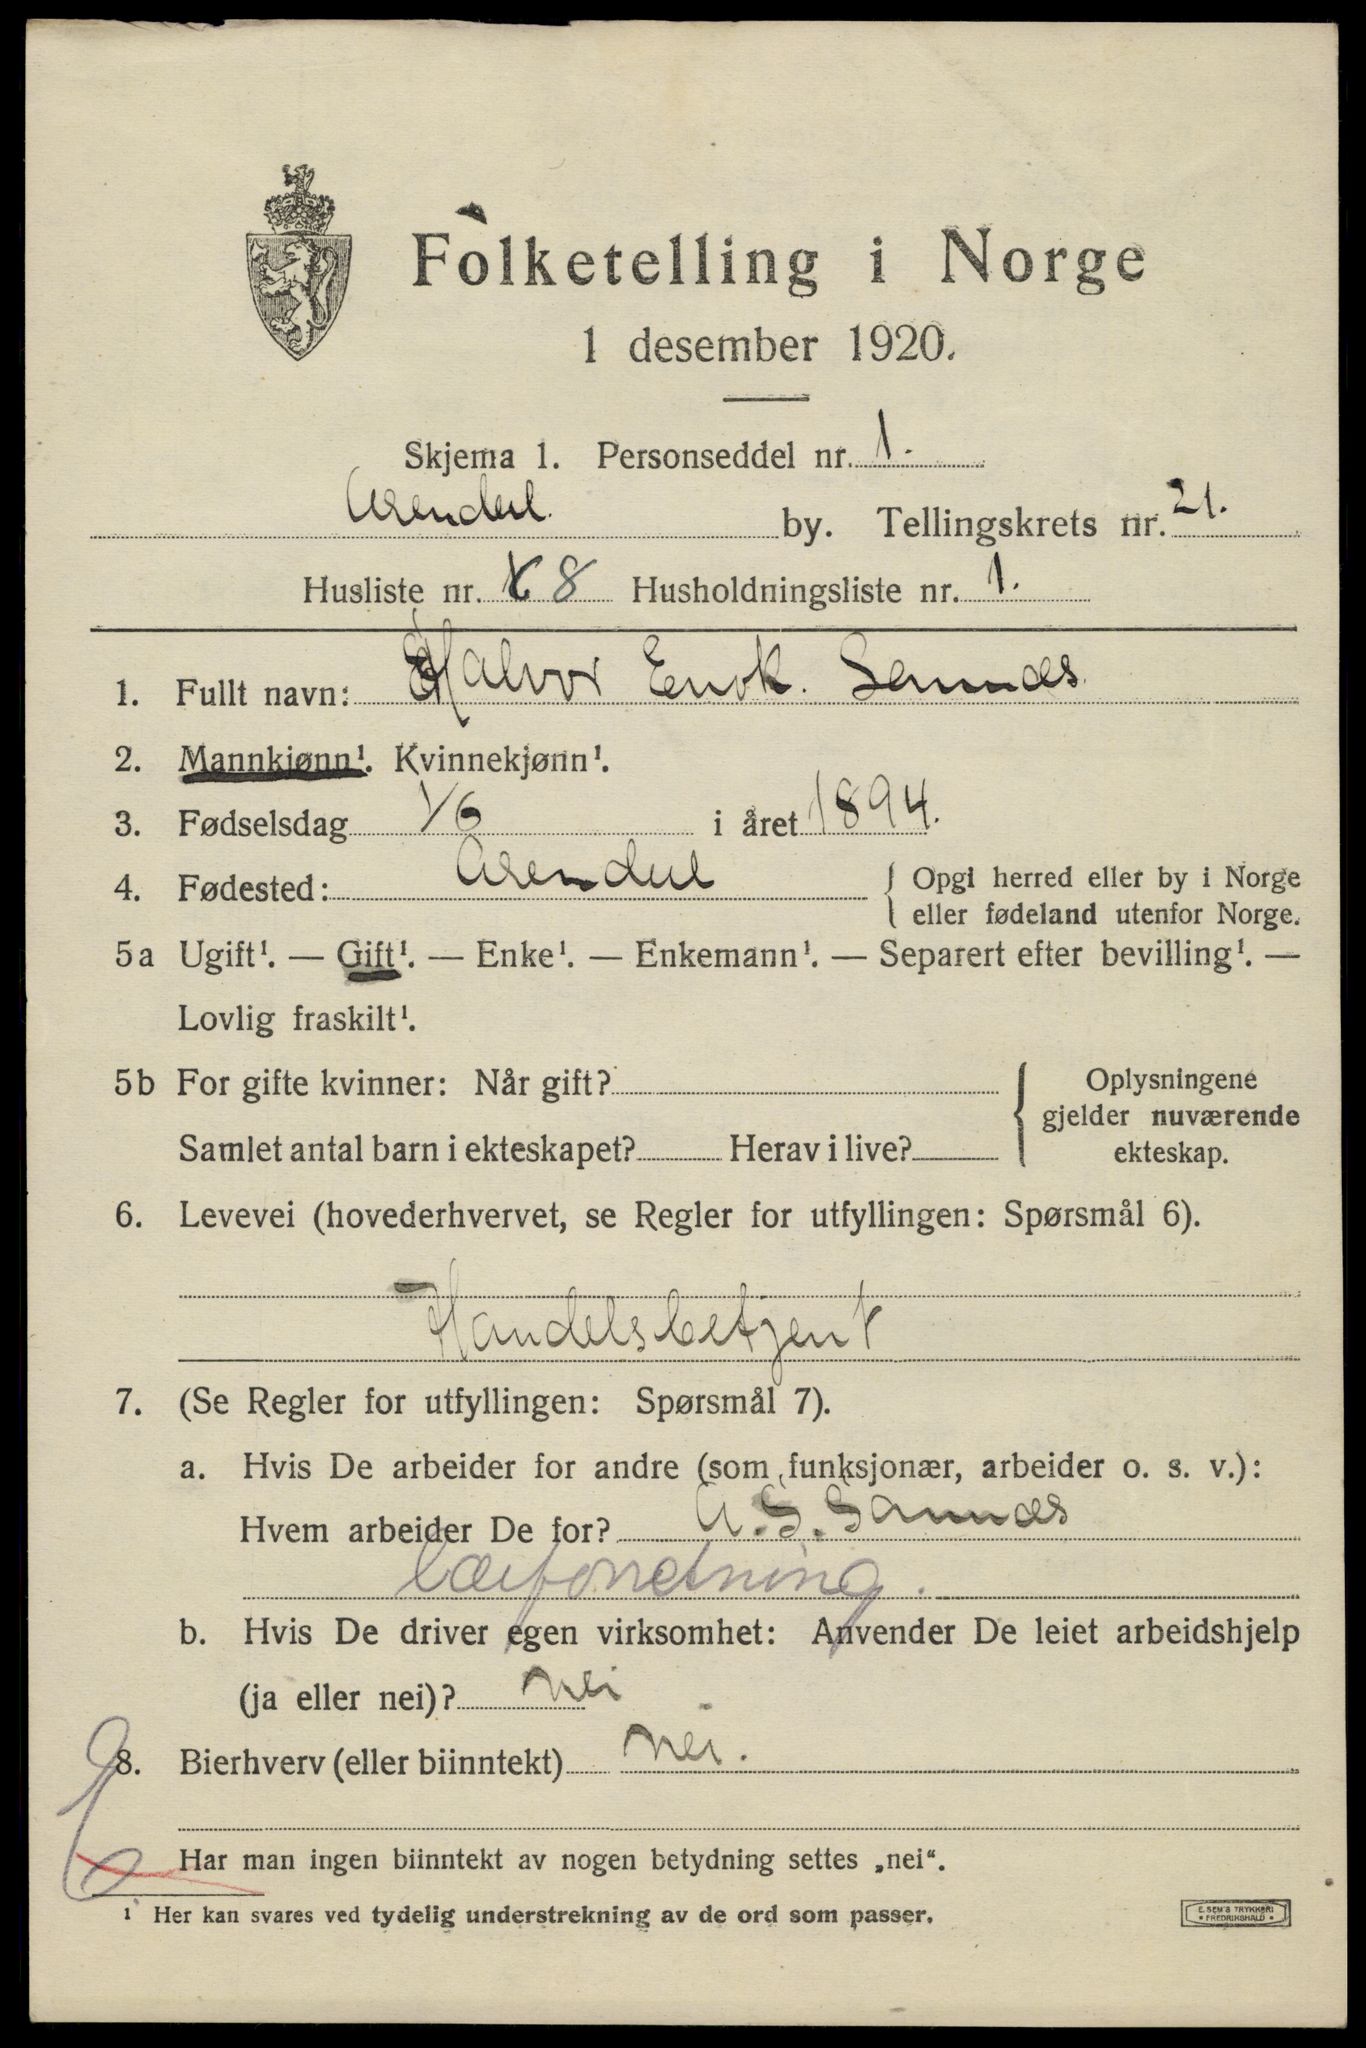 Folketelling i Norge
1 desember 1920.
Skjema 1. Personseddel nr. 1.
Arendal by. Tellingskrets nr. 21.
Husliste nr. 8 Husholdningsliste nr. 1.
1. Fullt navn: Halvor Enok. Samnæs
2. Mannkjønn¹. Kvinnekjønn¹.
3. Fødselsdag 1/6 i året 1894.
4. Fødested: Arendal { Opgi herred eller by i Norge
eller fødeland utenfor Norge.
5a Ugift¹. — Gift¹. — Enke¹. — Enkemann¹. — Separert efter bevilling¹. —
Lovlig fraskilt¹.
5b For gifte kvinner: Når gift? { Oplysningene
gjelder nuværende
Samlet antal barn i ekteskapet? Herav i live? ekteskap.
6. Levevei (hovederhvervet, se Regler for utfyllingen: Spørsmål 6).
Handelsbetjent
7. (Se Regler for utfyllingen: Spørsmål 7).
a. Hvis De arbeider for andre (som funksjonær, arbeider o. s. v.):
Hvem arbeider De for? A. S. Samnæs
lærforretning.
b. Hvis De driver egen virksomhet: Anvender De leiet arbeidshjelp
(ja eller nei)? nei
8. Bierhverv (eller biinntekt) nei.
Har man ingen biinntekt av nogen betydning settes „nei“.
¹ Her kan svares ved tydelig understrekning av de ord som passer.
E. SEM'S TRYKKERI
* FREDRIKSHALD *